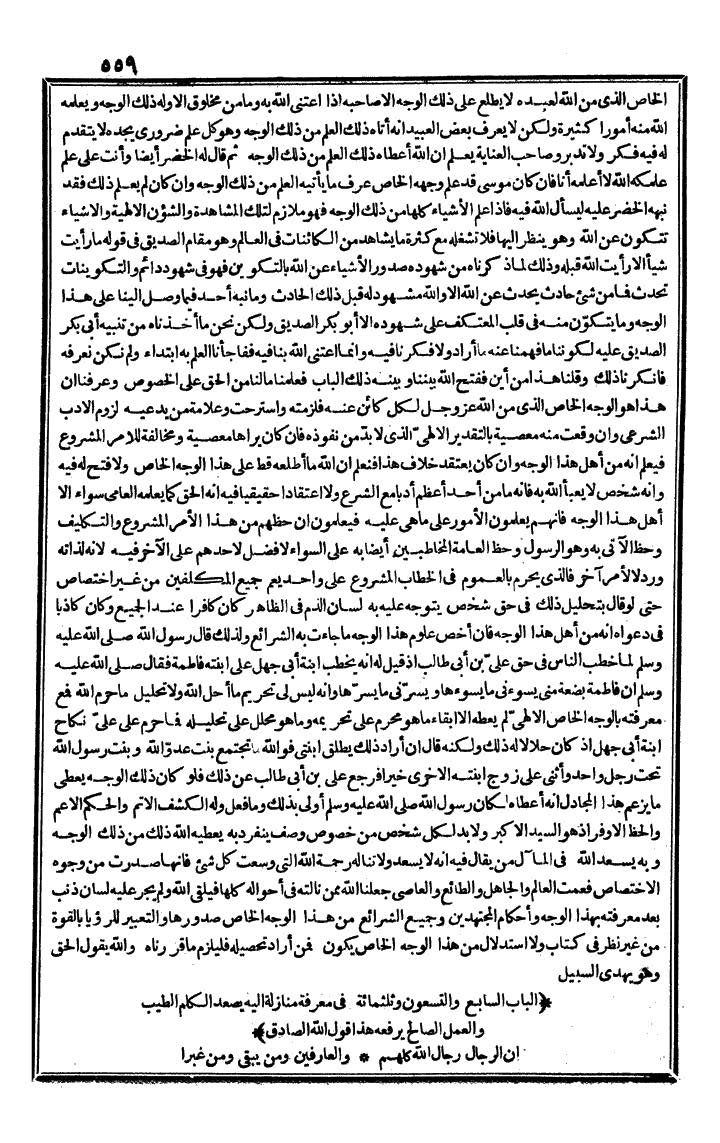 ٥٥٩
الخاص الذى من الله لعبده لا يطلع على ذلك الوجه الا صاحبه اذا اعتنى الله به وما من مخلوق الا وله ذلك الوجه ويعلمه
الله منه أمورا كثيرة ولكن لا يعرف بعض العبيد انه أتاه ذلك العلم من ذلك الوجه وهو كل علم ضرورى يجده لا يتقدم
له فيه فكر ولا تدبر وصاحب العناية يعلم ان الله أعطاه ذلك العلم من ذلك الوجه ثم قال له الخضر أيضا وأنت على علم
علمكه الله لا أعلمه أنا فان كان موسى قد علم وجهه الخاص عرف ما يأتيه العلم من ذلك الوجه وان كان لم يعلم ذلك فقد
نبهه الخضر عليه ليسأل الله فيه فاذا علم الأشياء كلها من ذلك الوجه فهو ملازم لتلك المشاهدة والشؤن الالهية والاشياء
تتكون عن الله وهو ينظر اليها فلا تشغله مع كثرة ما يشاهد من الكائنات فى العالم وهو مقام الصديق فى قوله ما رأيت
شيأ الا رأيت الله قبله وذلك لما ذكرناه من شهوده صدور الأشياء عن الله بالتكوين فهو فى شهود دائم والتكوينات
تحدث فما من شئ حادث يحدث عن الله الا والله مشهود له قبل ذلك الحادث وما نبه أحد فيما وصل الينا على هذا
الوجه وما يتكوّن منه فى قلب المعتكف على شهوده الا أبو بكر الصديق ولكن نحن ما أخذناه من تنبيه أبى بكر
الصديق عليه لكوننا ما فهمنا عنه ما أراد ولا فكرنا فيه وانما اعتنى الله بنا فيه ففاجأنا العلم به ابتداء ولم نكن نعرفه
فانكرنا ذلك وقلنا هذا من أين ففتح الله بيننا وبينه ذلك الباب فعلمنا ما لنا من الحق على الخصوص وعرفنا ان
هذا هو الوجه الخاص الذى من الله عز وجل لكل كائن عنه فلزمته واسترحت وعلامة من يدعيه لزوم الادب
الشرعى وان وقعت منه معصية بالتقدير الالهىّ الذى لا بدّ من نفوذه فان كان يراها معصية ومخالفة للامر المشروع
فيعلم انه من أهل هذا الوجه وان كان يعتقد خلاف هذا فنعلم ان الله ما أطلعه قط على هذا الوجه الخاص ولا فتح له فيه
وانه شخص لا يعبأ الله به فانه ما من أحد أعظم أدبا مع الشرع ولا اعتقادا حقيقيا فيه انه الحق كما يعلمه العامى سواء الا
أهل هذا الوجه فانهم يعلمون الأمور على ما هى عليه فيعلمون ان حظهم من هذا الأمر المشروع والتكليف
وحظ الآتى به وهو الرسول وحظ العامة المخاطبين أيضا به على السواء لا فضل لاحدهم على الآخر فيه لانه لذاته
ورد لا لأمر آخر فالذى يحرم بالعموم فى الخطاب المشروع على واحد يعم جميع المكلفين من غير اختصاص
حتى لو قال بتحليل ذلك فى حق شخص يتوجه عليه به لسان الذم فى الظاهر كان كافرا عند الجميع وكان كاذبا
فى دعواه انه من أهل هذا الوجه فان أخص علوم هذا الوجه ما جاءت به الشرائع ولذلك قال رسول الله صلى الله عليه
وسلم لما خطب الناس فى حق علىّ بن أبى طالب اذ قيل له انه يخطب ابنة أبى جهل على ابنته فاطمة فقال صلى الله عليه
وسلم ان فاطمة بضعة منى يسوءنى ما يسوءها ويسرّنى ما يسرّها وانه ليس لى تحريم ما أحل الله ولا تحليل ما حرم الله فمع
معرفته بالوجه الخاص الالهىّ لم يعطه الا ابقاء ما هو محرم على تحريمه وما هو محلل على تحليله فما حرم على علىّ نكاح
ابنة أبى جهل اذ كان حلالا له ذلك ولكنه قال ان أراد ذلك يطلق ابنتى فو الله ما تجتمع بنت عدوّ الله وبنت رسول الله
تحت رجل واحد وأثنى على زوج ابنته الاخرى خيرا فرجع على بن أبى طالب عن ذلك فلو كان ذلك الوجه يعطى
ما يزعم هذا المجادل انه أعطاه لكان رسول الله صلى الله عليه وسلم أولى بذلك وما فعل وله الكشف الاتم والحكم الاعم
والحظ الاوفر اذ هو السيد الاكبر ولا بد لكل شخص من خصوص وصف ينفرد به يعطيه الله ذلك من ذلك الوجه
وبه يسعد الله فى المآل من يقال فيه انه لا يسعد ولا تناله رحمة الله التى وسعت كل شئ فانها صدرت من وجوه
الاختصاص فعمت العالم والجاهل والطائع والعاصى جعلنا الله ممن نالته فى أحواله كلها فيلقى الله ولم يجر عليه لسان ذنب
بعد معرفته بهذا الوجه وأحكام المجتهدين وجميع الشرائع من هذا الوجه الخاص صدورها والتعبير للرؤيا بالقوة
من غير نظر فى كتاب ولا استدلال من هذا الوجه الخاص يكون فمن أراد تحصيله فليلزم ما قررناه والله يقول الحق
وهو يهدى السبيل
﴿الباب السابع والتسعون وثلثمائة فى معرفة منازلة اليه يصعد الكلم الطيب
والعمل الصالح يرفعه هذا قول الله الصادق﴾
ان الرجال رجال الله كلهم * والعارفين ومن يبقى ومن غبرا